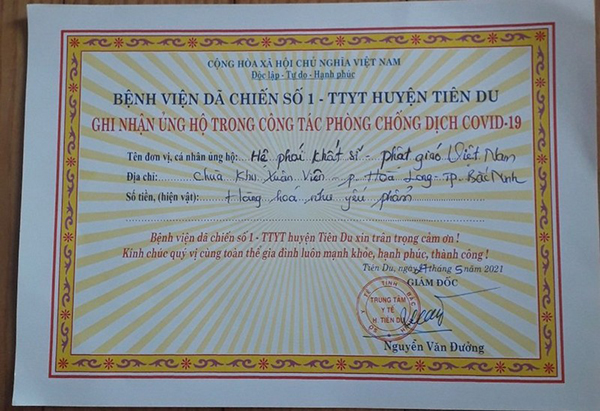 CỘNG HÒA XÃ HỘI CHỦ NGHĨA VIỆT NAM
Độc lập - Tự do - Hạnh phúc
BỆNH VIỆN DÃ CHIẾN SỐ 1 - TTYT HUYỆN TIÊN DU
GHI NHẬN ỦNG HỘ TRONG CÔNG TÁC PHÒNG CHỐNG DỊCH COVID-19
Tên đơn vị, cá nhân ủng hộ: Hệ phái khất sĩ - phật giáo Việt Nam
Địa chỉ: Chùa Khu Xuân Viên - p. Hoà Long - Tp. Bắc Ninh
Số tiền, (hiện vật): Hàng hoá nhu yếu phẩm
Bệnh viện dã chiến số 1 - TTYT huyện Tiên Du xin trân trọng cảm ơn !
Kính chúc quý vị cùng toàn thể gia đình luôn mạnh khỏe, hạnh phúc, thành công !
Tiên Du, ngày tháng 5 năm 2021
GIÁM ĐỐC
TRUNG TÂM
Y TẾ
H. TIÊN DU
Nguyễn Văn Đưởng